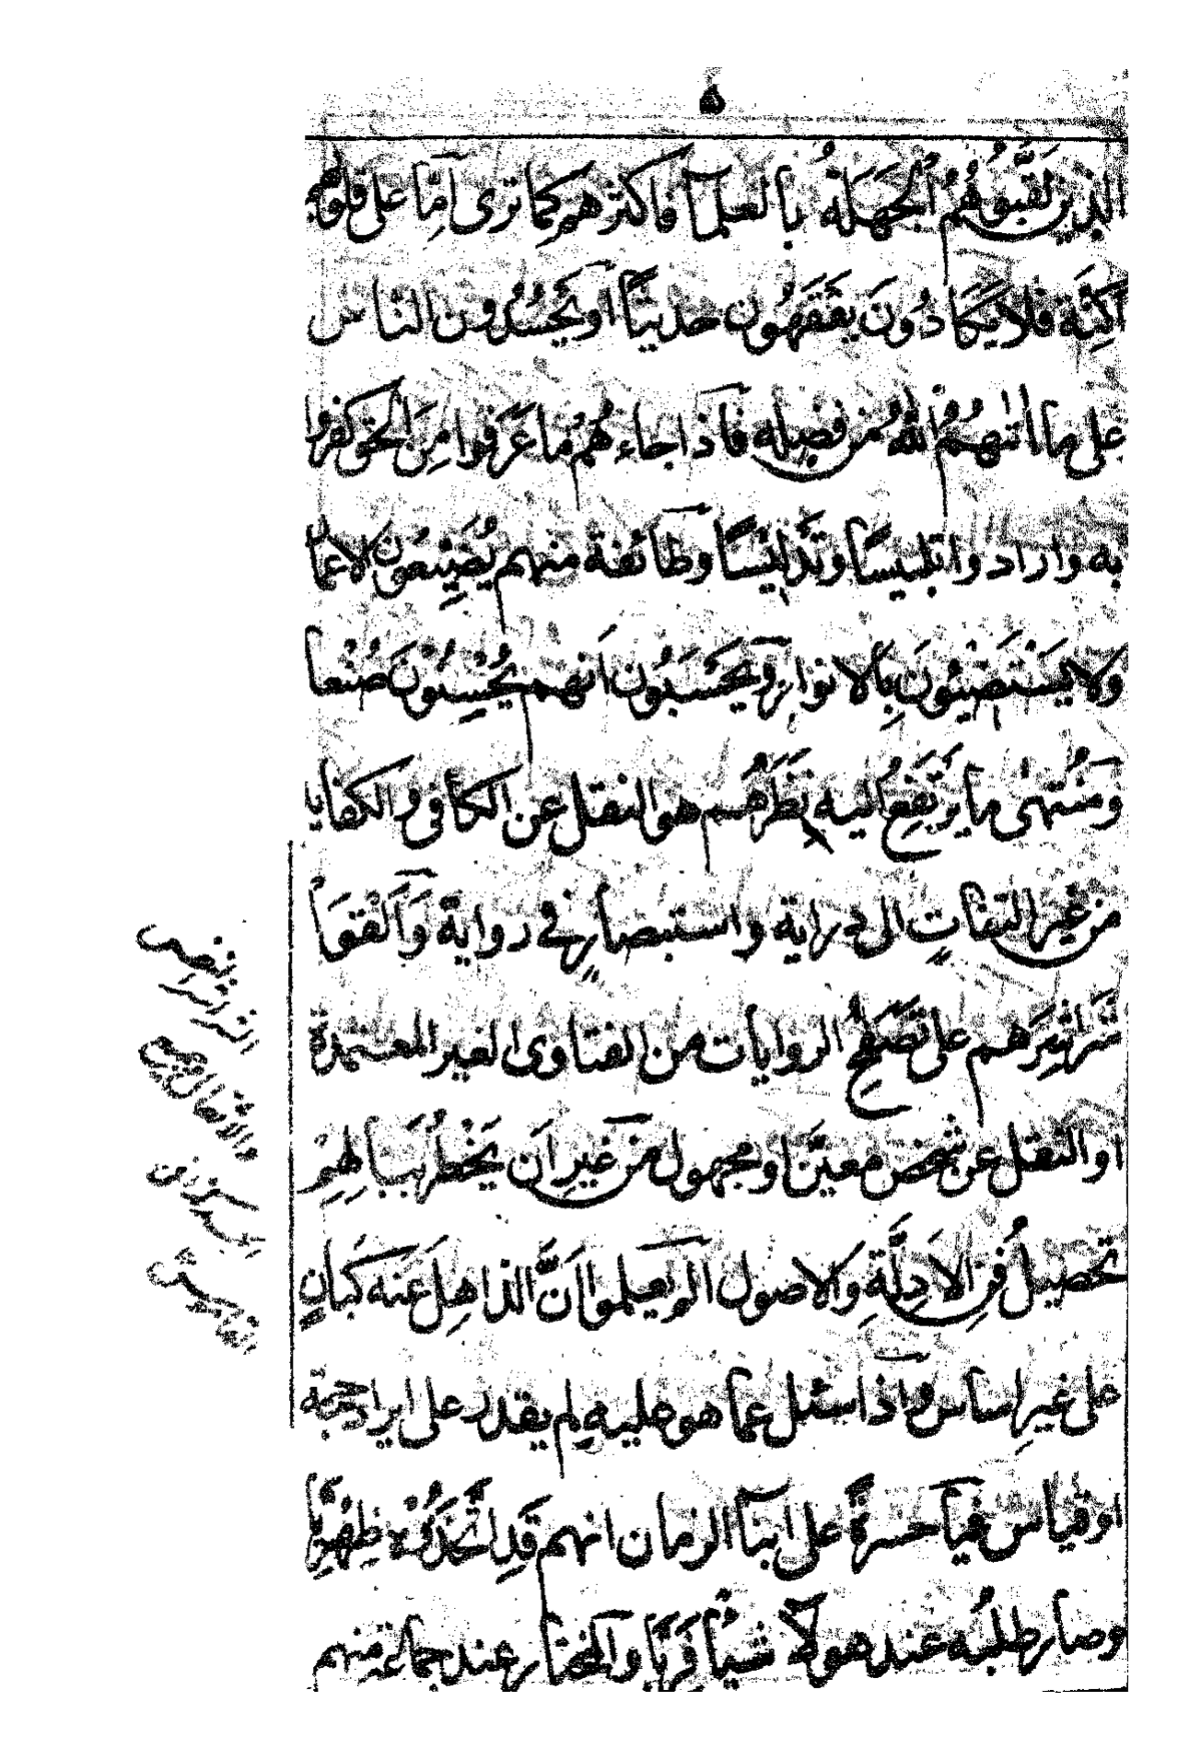 ٥
الذين لقبوهم الجهلة بالعلمآ فاكثرهم كما ترى امّا على قلوبهم
اكِنّة فلا يكادُونَ يفقهُون حديثاً او يحسُدُون الناس
على ما اتٰهمُ اللهُ من فضله فاذا جاءهم ما عَرفوا مِنَ الحق كفروا
به وارادوا تلبيساً وتدليسًا وطائفة منهم يُضَيّعون الاعما
ولا يَسْتَضيئونَ بِالانوار ويحسَبُون اَنهم يُحْسِنُونَ صُنعا
ومنتهى ما يرتفِعُ اليه نظَرهُم هو النقل عن الكافى والكفايا
من غير التفاتٍ الى دراية واستبصارٍ فى رواية وَالْقوَا
شَراشِرَهم على تصَفّحِ الروايات من الفتاوى الغير المعتمدة
او النقل عن شخص معيّن او مجهول من غيرِ اَن يَخْطُرَ ببالهِمْ
تحصيلُ فنِ الادِلَّةِ والاصول الم يعلموا اَنَّ الذاهِلَ عَنه كبانٍ
على غيرِ اساس واذا سئل عما هو عليهِ لم يقدر على ايراد حجة
او قياس فيا حسرةً على ابنآ الزمان انهم قَدِ اتَّخذُوْه ظِهْرِيّاً
وصار طلبُه عند هولاۤ شيْئاً فَرِيّاً والمختار عند جماعة منهم
الشراشر النفس
والاثقال جميع
الجسد